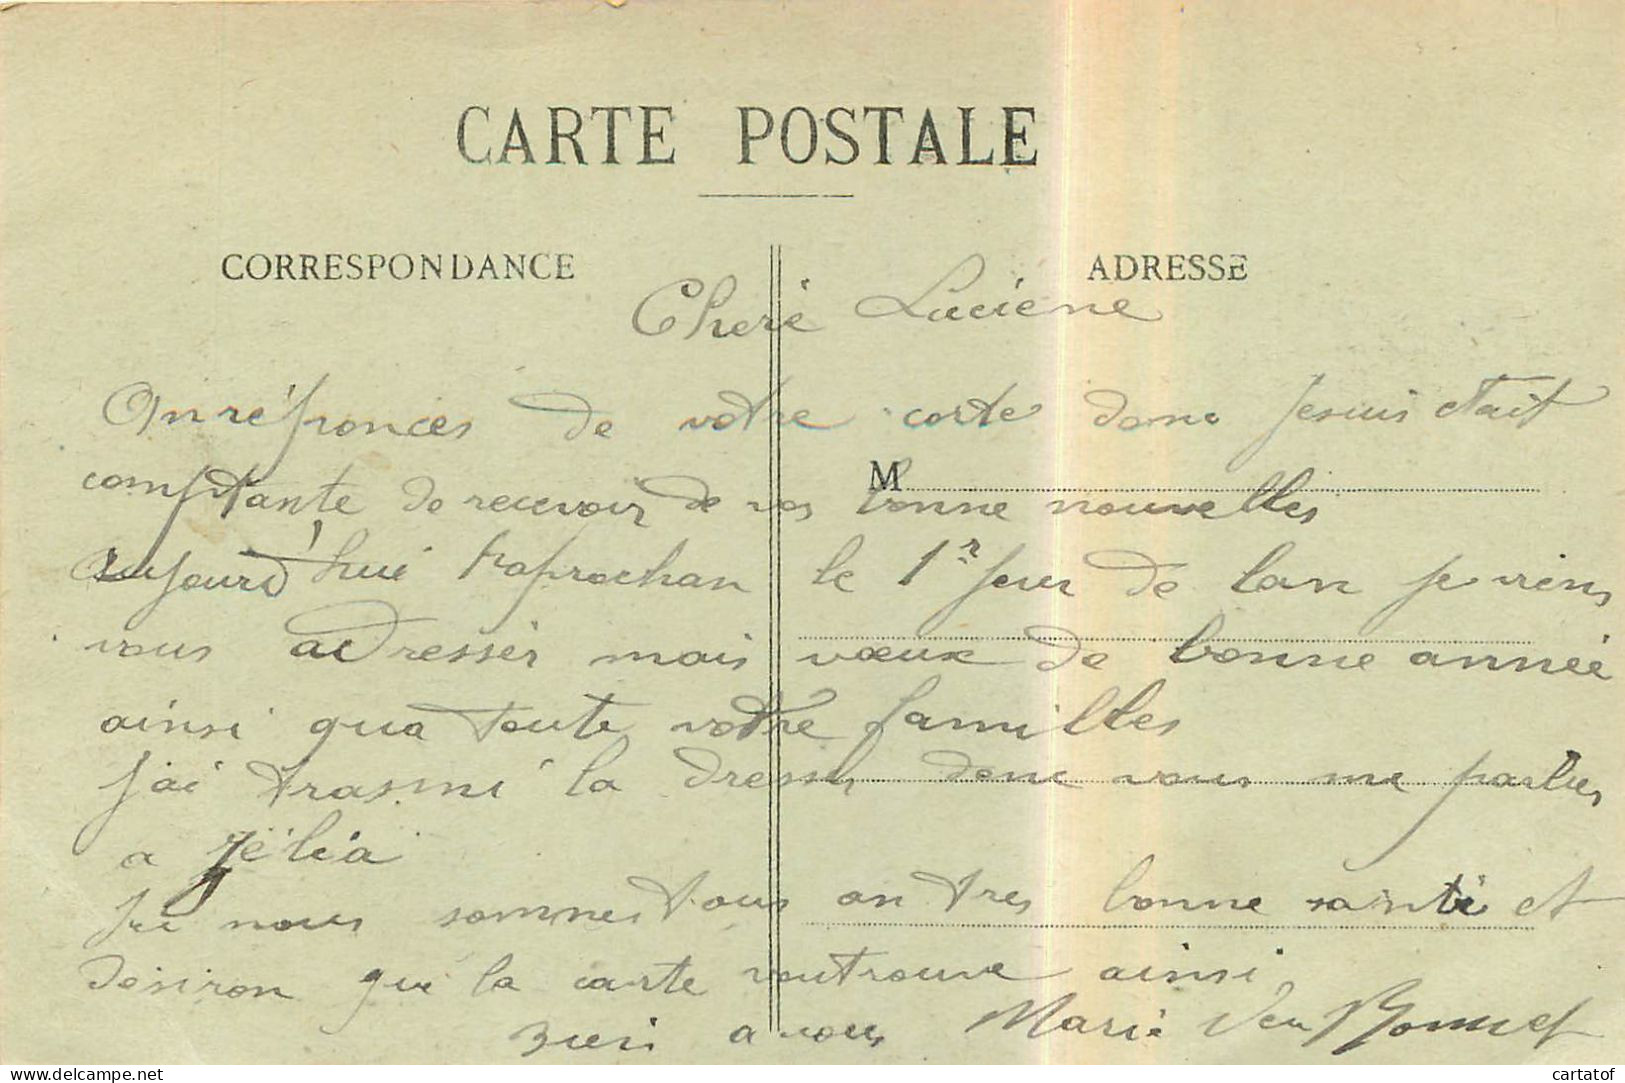 CARTE POSTALE
CORRESPONDANCE
ADRESSE
Cheré Luciene
On réponces de votre carte donc Jesuis était
M
comptante de recevoir de vos bonne nouvelles
aujourd'hui raprochan le 1r jour de lan je viens
vous adresser mais vœux de bonne année
ainsi qua toute votre familles
j'ai trasmi la dresse donc vous me parlies
a Zélia
ici nous sommes tous an tres bonne santé et
desiron que la carte voutrouve ainsi
a vous Marie Veu Bonnet
www.delcampe.net
cartatof